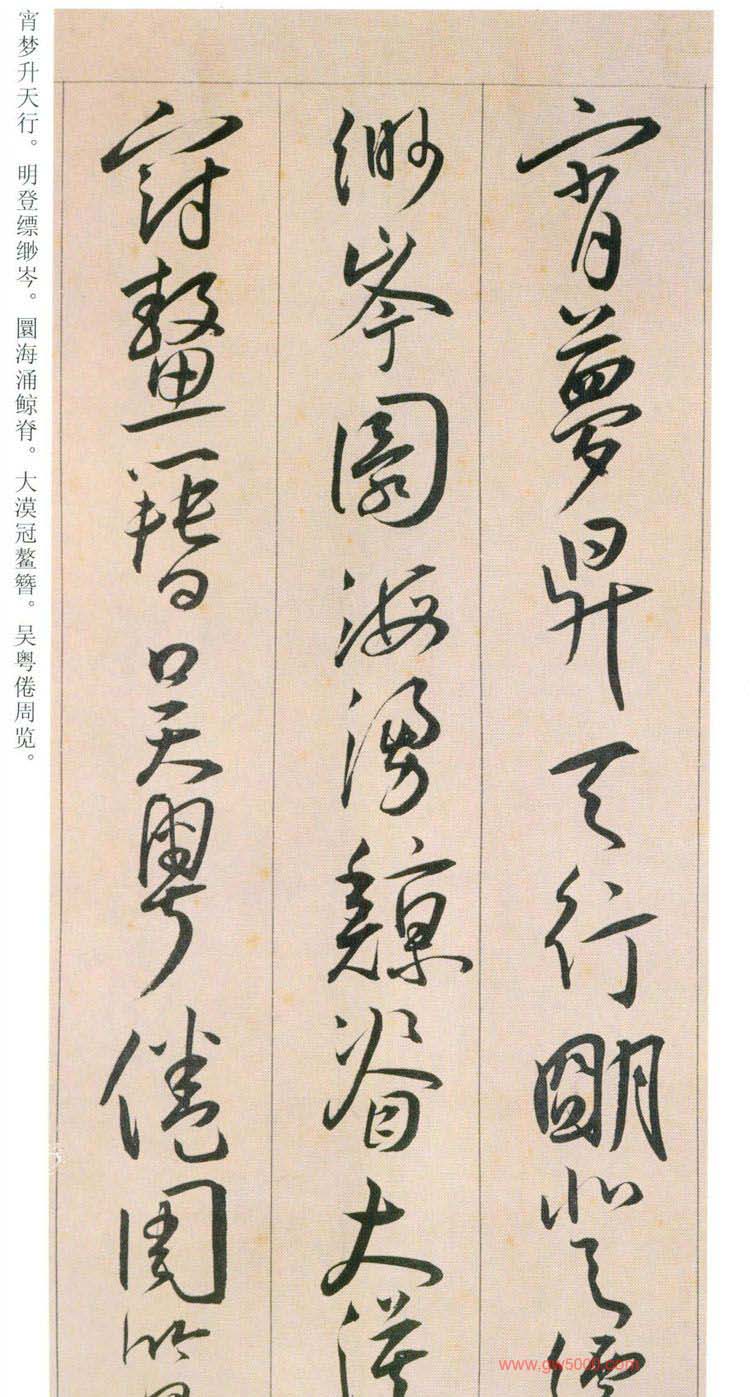 宵夢昇天行朙登
緲岑圜海湧鯨脊大漠
冠鼇簪吳粵倦周覽
宵梦升天行。明登缥缈岑。圜海涌鲸脊。大漠冠鳌簪。吴粤倦周览。